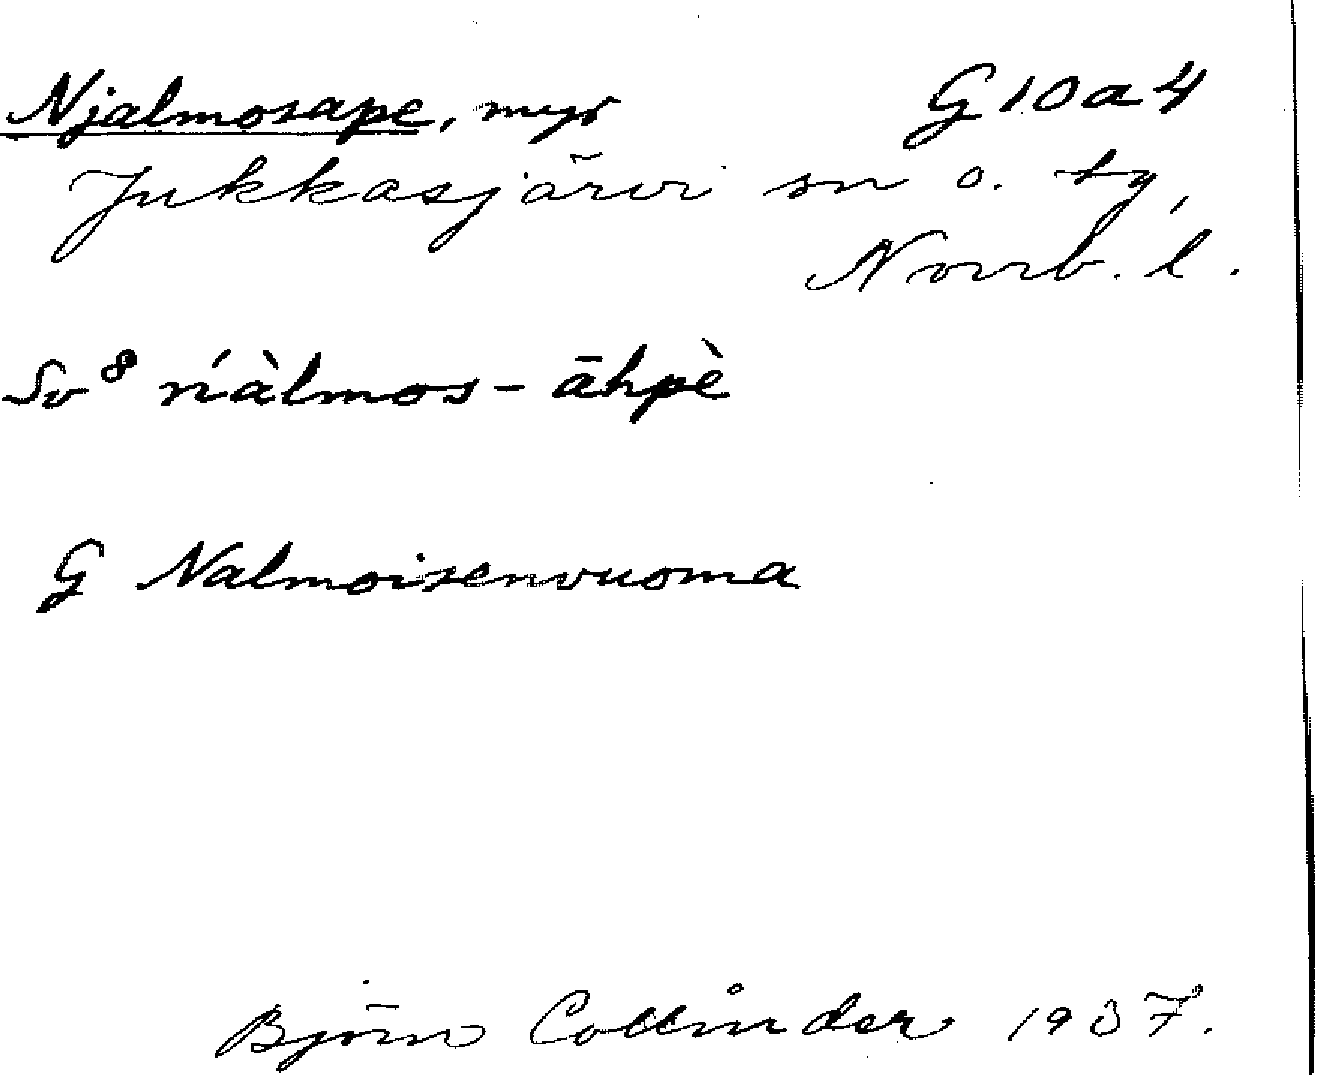 Njalmosape, myr G 10 a 4
Jukkasjärvi sn o. tg,
Norrb. l.
Sv 8 ńàlmos-āhpè
G Nalmoisenvuoma
Björn Collinder 1937.